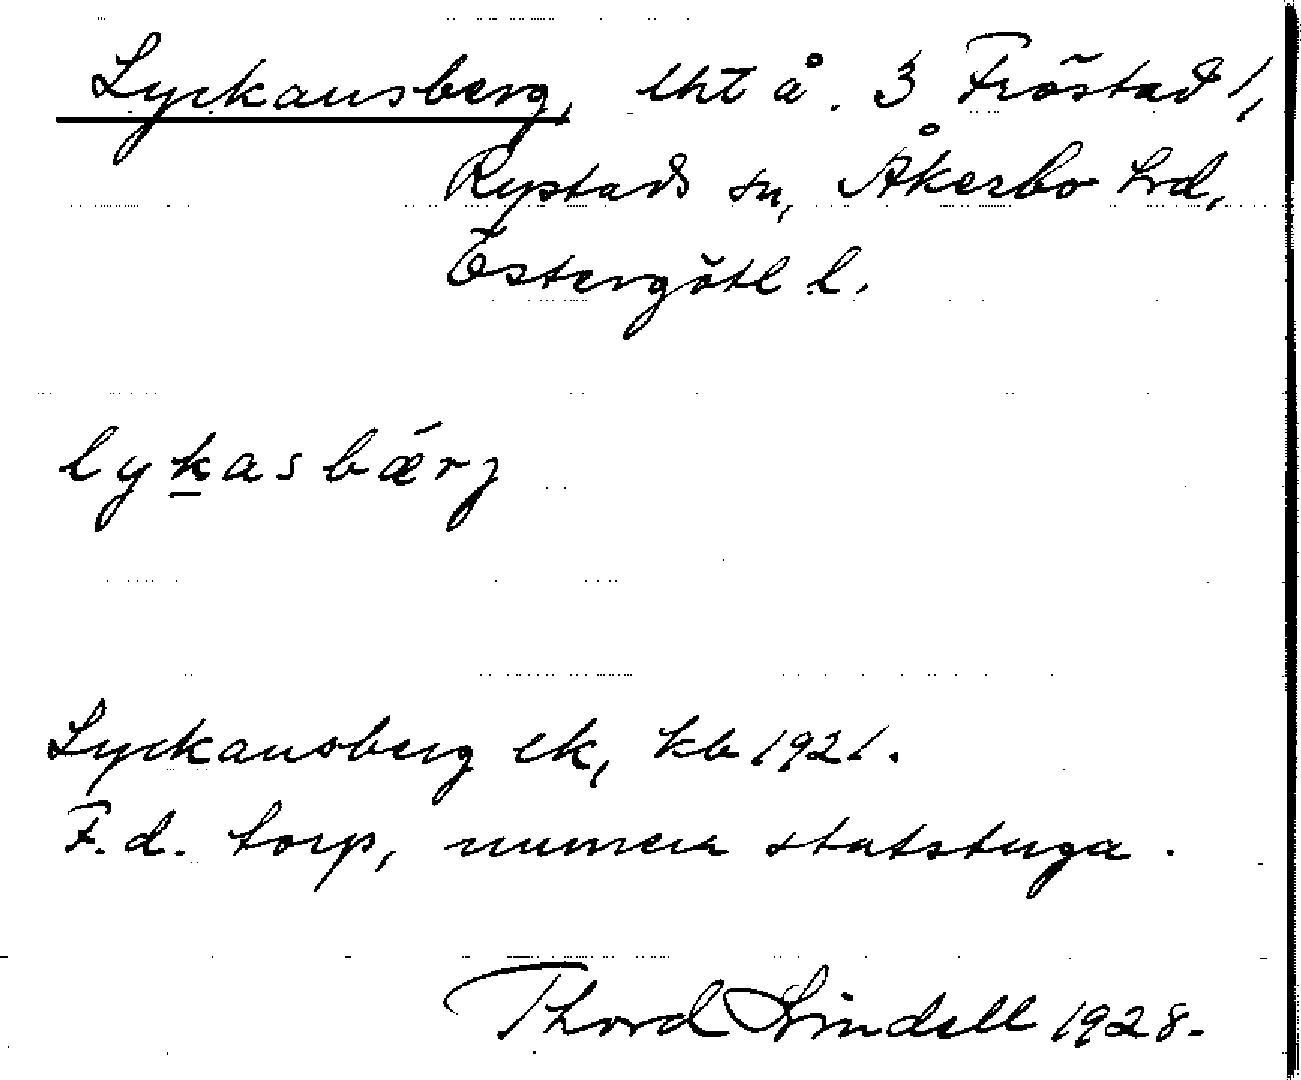 Lyckansberg, lht å. 3 Fröstad 1,
Rystads sn, Åkerbo hrd,
Östergötl l.
lykasbǽrj
Lyckansberg ek, kb 1921.
F.d. torp, numera statstuga.
Thord Lindell 1928.